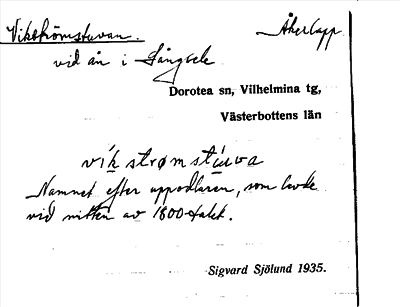 Vikströmstuvan. Åkerlapp
vid ån i Långsele
Dorotea sn, Vilhelmina tg,
Västerbottens län
víkstrømstúwa
Namnet efter uppodlaren, som levde
vid mitten av 1800-talet.
Sigvard Sjölund 1935.